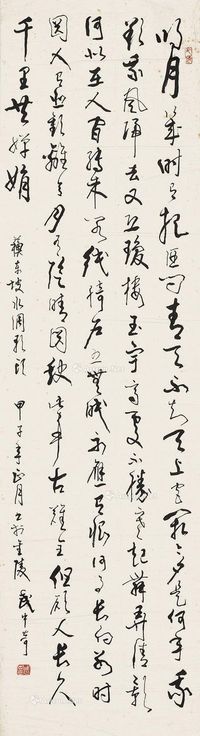 明月幾時有把酒問青天不知天上宮闕今夕是何年我
欲乘風歸去又恐瓊樓玉宇高處不勝寒起舞弄清影
何似在人間轉朱閣低綺户照無眠不應有恨何事長向别時
圓人有悲歡離合月有陰晴圓缺此事古難全但願人長久
千里共嬋娟
蘇東坡水調歌頭 甲子年正月書於金陵 武中奇